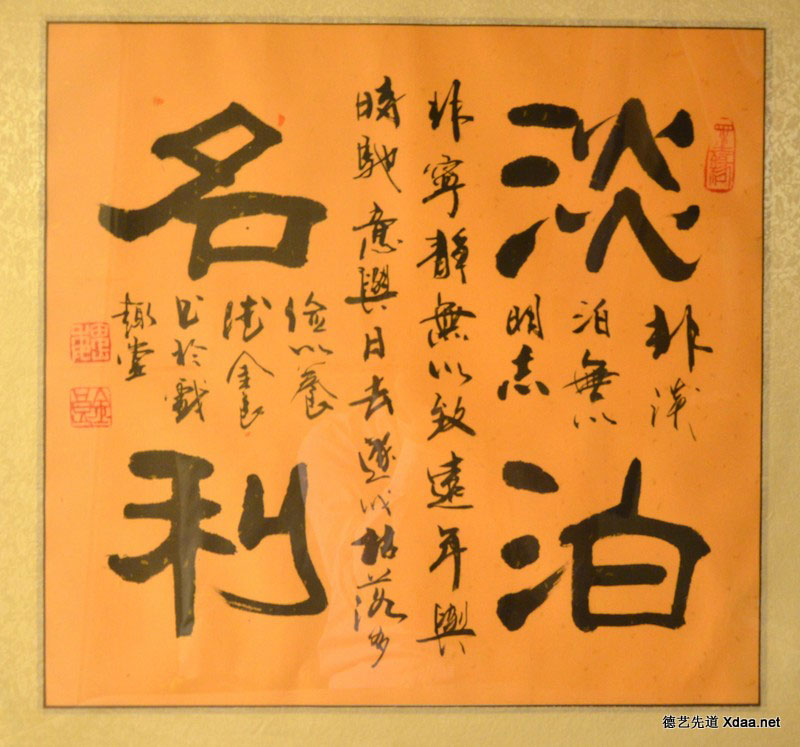 淡泊名利
非淡
泊無以
明志
非寧静無以致遠年與
時馳意與日去遂成枯落多
儉以養
德金良
書於戲
趣堂
德艺先道 Xdaa.net